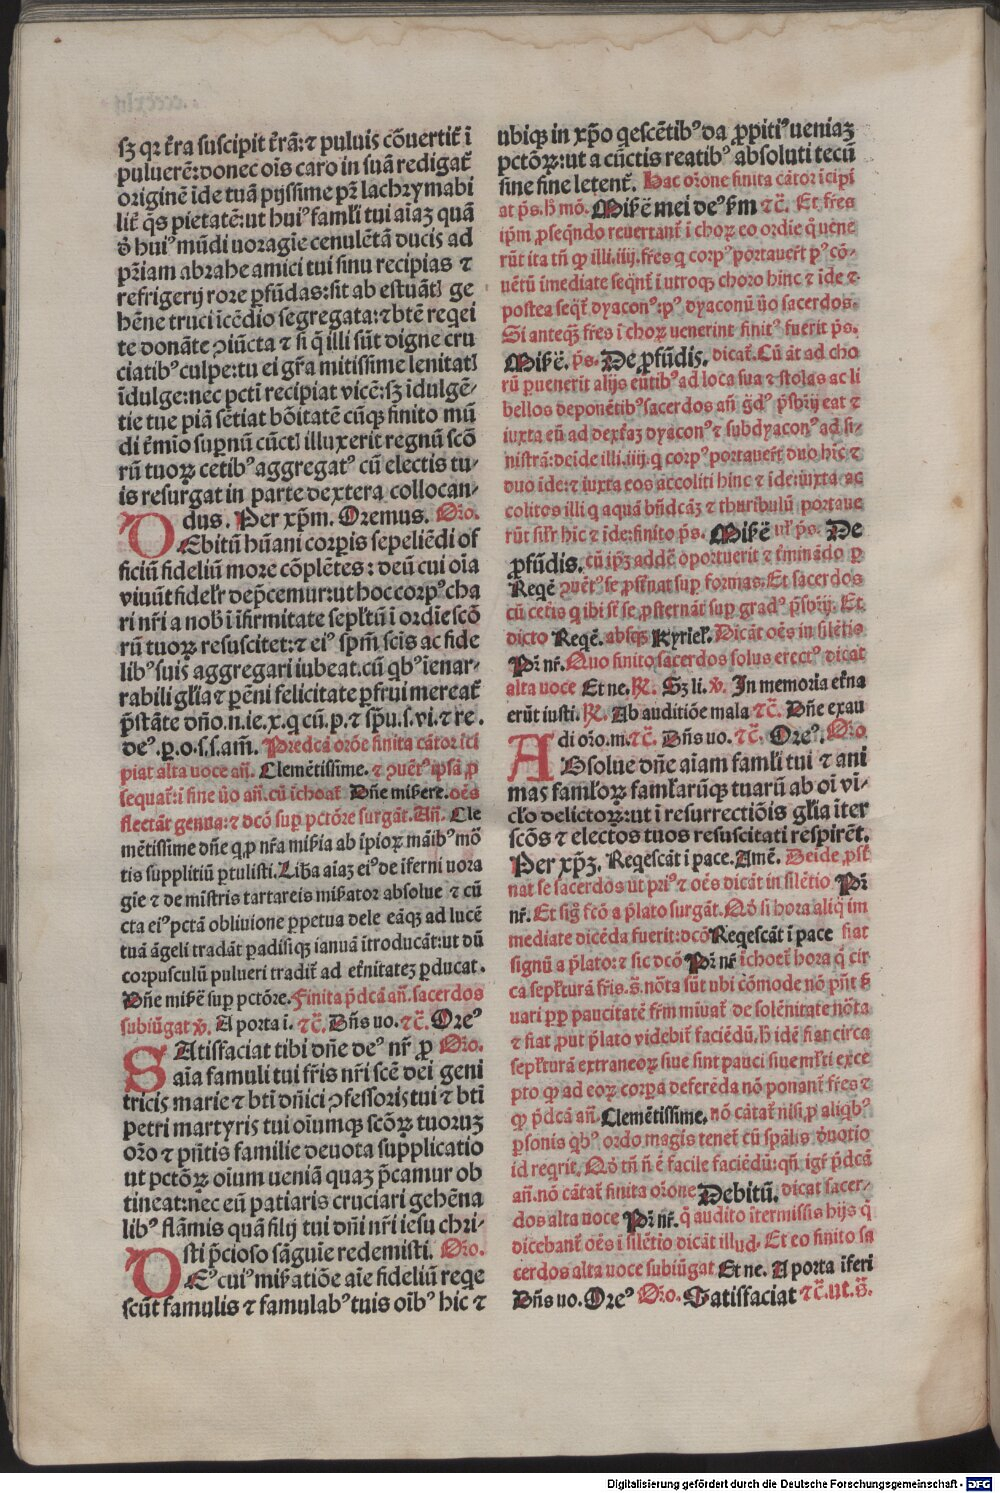 sꝫ qꝛ t̃ra suscipit t̃rã: ⁊ puluis cõuertit̃ ĩ
puluerẽ: donec oĩs caro in suã redigat̃
originẽ ĩde tuã pijssime pr̃ lachrymabi
lit̃ q̃s pietatẽ: ut huiꝰ famĺi tui aĩaꝫ quã
d̃ huiꝰ mũdi uoragĩe cenulẽtã ducis ad
pr̃iam abrahe amici tui sinu recipias ⁊
refrigerij rore ꝑfũdas: sit ab estuãtĩ ge
hẽne truci ĩcẽdio segregata: ⁊ btẽ reqei
te donãte ꝯiũcta ⁊ si q̃ illi sũt digne cru
ciatibꝰ culpe: tu ei gr̃a mitissime lenitatĩ
ĩdulge: nec pctĩ recipiat vicẽ: sꝫ ĩdulgẽ⸗
tie tue piã sẽtiat bõitatẽ cũqꝫ finito mũ
di t̃mĩo suꝑnũ cũctĩ illuxerit regnũ scõ
rũ tuoꝝ cetibꝰ aggregatꝰ cũ electis tu⸗
is resurgat in parte dextera collocan⸗
dus. Per xp̃m. Oremus. Or̃o.
DEbitũ hũani corꝑis sepeliẽdi of
ficiũ fideliũ more cõplẽtes: deũ cui oĩa
viuũt fideĺr dep̃cemur: ut hoc corpꝰ cha
ri nr̃i a nobĩ ĩ ĩfirmitate sepĺtũ ĩ ordĩe scõ
rũ tuoꝝ resuscitet: ⁊ eiꝰ sp̃m scĩs ac fide
libꝰ suis aggregari iubeat. cũ qbꝰ ienar⸗
rabili gĺia ⁊ ꝑẽni felicitate ꝑfrui mereat̃
p̃stãte dño. n. ie. x. q cũ. p. ⁊ sp̃u. s. vi. ⁊ re.
deꝰ. ꝑ. o. s. s. am̃. Predcã orõe finita cãtor ĩci
piat alta uoce añ. Clemẽtissime. ⁊ ꝯuẽtꝰ ip̃sã ꝓ
sequat̃: ĩ fine ũo añ. cũ ĩchoat̃ Dñe miẜere. oẽs
flectãt genua: ⁊ dcõ suꝑ pctõre surgãt. Añ. Cle
mẽtissime dñe q ꝑ nr̃a miẜia ab ĩpioꝝ mãibꝰ mõ
tis suppliciũ ꝑtulisti. Liẜa aĩaꝫ eiꝰ de ĩferni uora
gĩe ⁊ de mĩstris tartareis miẜator absolue ⁊ cũ
cta eiꝰ pctã obliuione ꝑpetua dele eãqꝫ ad lucẽ
tuã ãgeli tradãt ꝑadisiqꝫ ianuã ĩtroducãt: ut dũ
corpusculũ pulueri tradit̃ ad et̃nitateꝫ ꝑducat.
Dñe miẜẽ suꝑ pctõre. Finita p̃dcã añ. sacerdos
subiũgat ℣. A porta ĩ. ⁊c̃. Dñs uo. ⁊c̃. Oreꝰ
SAtisfaciat tibi dñe deꝰ nr̃ ꝓ Or̃o.
aĩa famuli tui fr̃is nr̃i scẽ dei geni
tricis marie ⁊ btĩ dñici ꝯfessoris tui ⁊ btĩ
petri martyris tui oĩumqꝫ scõꝝ tuoruꝫ
or̃o ⁊ pñtis familie deuota supplicatio
ut pctõꝝ oĩum ueniã quaꝫ p̃camur ob
tineat: nec eũ patiaris cruciari gehẽna
libꝰ flãmis quã filij tui dñi nr̃i iesu chri⸗
sti p̃cioso sãguĩe redemisti. Or̃o.
DEꝰ cuiꝰ miẜatiõe aĩe fideliũ reqe
scũt famulis ⁊ famulabꝰ tuis oĩbꝰ hic ⁊
ubiqꝫ in xp̃o qescẽtibꝰ da ꝓpitiꝰ ueniaꝫ
pctõꝝ: ut a cũctis reatibꝰ absoluti tecũ
sine fine letent̃. Hac or̃one finita cãtor ĩcipĩ
at p̃s. h̃ mõ. Miẜẽ mei deꝰ ẜm ⁊c̃. Et fr̃es
ip̃m ꝓseq̃ndo reuertant̃ ĩ choꝝ eo ordĩe q̃ uene
rũt ita tñ ꝙ illi. iiij. fr̃es q corpꝰ portauer̃t ꝑꝰ cõ⸗
uẽtũ ĩmediate seq̃nt̃ ĩ utroqꝫ choro hinc ⁊ ĩde ⁊
postea seqt̃ dyaconꝰ: ꝑꝰ dyaconũ ũo sacerdos.
Si anteqꝫ fr̃es ĩ choꝝ uenerint finitꝰ fuerit p̃s.
Miẜẽ. p̃s. De ꝓfũdis. dicat̃. Cũ ãt ad cho
rũ ꝑuenerit alijs eũtibꝰ ad loca sua ⁊ stolas ac li
bellos deponẽtibꝰ sacerdos añ g̃dꝰ p̃sb̃rij eat ⁊
iuxta eũ ad dext̃aꝫ dyaconꝰ ⁊ subdyaconꝰ ad si⸗
nistrã: deĩde illi. iiij. q corpꝰ portauer̃t duo hĩc ⁊
duo ĩde: ⁊ iuxta eos accoliti hinc ⁊ ĩde: iuxta ac
colitos illi q aquã bñdcãꝫ ⁊ thuribulũ portaue
rũt siĺr hĩc ⁊ ĩde: finito p̃s. Miẜẽ uĺ p̃s. De
ꝓfũdis. cũ ip̃ꝫ addẽ oportuerit ⁊ t̃minãdo ꝑ
Reqẽ ꝯuẽtꝰ se ꝓst̃nat suꝑ formas. Et sacerdos
cũ cet̃is q ibi st̃ se ꝓsternãt suꝑ gradꝰ p̃sb̃rij. Et
dicto Reqẽ. absqꝫ Kyrieĺ. Dicãt oẽs in silẽtio
Pr̃ nr̃. Quo finito sacerdos solus erectꝰ dicat
alta uoce Et ne. ℟. Sꝫ li. ℣. In memoria et̃na
erũt iusti. ℟. Ab auditiõe mala ⁊c̃. Dñe exau
di or̃o. m. ⁊c̃. Dñs uo. ⁊c̃. Oreꝰ. Or̃o
ABsolue dñe aĩam famĺi tui ⁊ ani
mas famĺoꝝ famĺarũqꝫ tuarũ ab oĩ vĩ⸗
cĺo delictoꝝ: ut ĩ resurrectiõis gĺia ĩter
scõs ⁊ electos tuos resuscitati respirẽt.
Per xp̃ꝫ. Reqescãt ĩ pace. Amẽ. Deĩde ꝓst̃
nat se sacerdos ut priꝰ ⁊ oẽs dicãt in silẽtio Pr̃
nr̃. Et sig̃ fcõ a p̃lato surgãt. Qd̃ si hora aliq̃ im
mediate dicẽda fuerit: dcõ Reqescãt ĩ pace fiat
signũ a p̃lato: ⁊ sic dcõ Pr̃ nr̃ ĩchoet̃ hora q̃ cir
ca sepĺturã fr̃is. s̃. nõta sũt ubi cõmode nõ pñt s̃
uari ꝓꝑ paucitatẽ fr̃m miuat̃ de solẽnitate nõta
⁊ fiat ꝓut p̃lato videbit̃ faciẽdũ. h̃ idẽ fiat circa
sepĺturã extraneoꝝ siue sint pauci siue mĺti exce
pto ꝙ ad eoꝝ corꝑa deferẽda nõ ponant̃ fr̃es ⁊
ꝙ p̃dcã añ. Clemẽtissime. nõ cãtat̃ nisi ꝓ aliqbꝰ
ꝑsonis qbꝰ ordo magis tenet̃ cũ sp̃alis deuotio
id reqrit. Qd̃ tñ ñ ẽ facile faciẽdũ: qñ. igt̃ p̃dcã
añ. nõ cãtat̃ finita or̃one Debitũ. dicat sacer⸗
dos alta uoce Pr̃ nr̃. q̃ audito ĩtermissis hijs q̃
dicebant̃ oẽs ĩ silẽtio dicãt illud. Et eo finito sa
cerdos alta uoce subiũgat Et ne. A porta ĩferi
Dñs uo. Oreꝰ Or̃o. Satisfaciat ⁊c̃. ut. s̃.
Digitalisierung gefördert durch die Deutsche Forschungsgemeinschaft - DFG